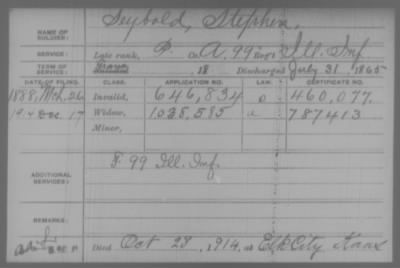 NAME OF SOLDIER: Seybold, Stephen.
SERVICE: Late rank, P. Co. A, 99 Reg't Ill. Inf
TERM OF SERVICE: 18 Discharged July 31, 1865
DATE OF FILING. CLASS. APPLICATION NO. LAW. CERTIFICATE NO.
1888, Mch. 26 Invalid, 646,834 460,077.
Dec. 17 Widow, 1038,585 a 787413
Minor,
ADDITIONAL SERVICES: F 99 Ill. Inf.
REMARKS:
Died Oct 28, 1914, at Elk City Kans